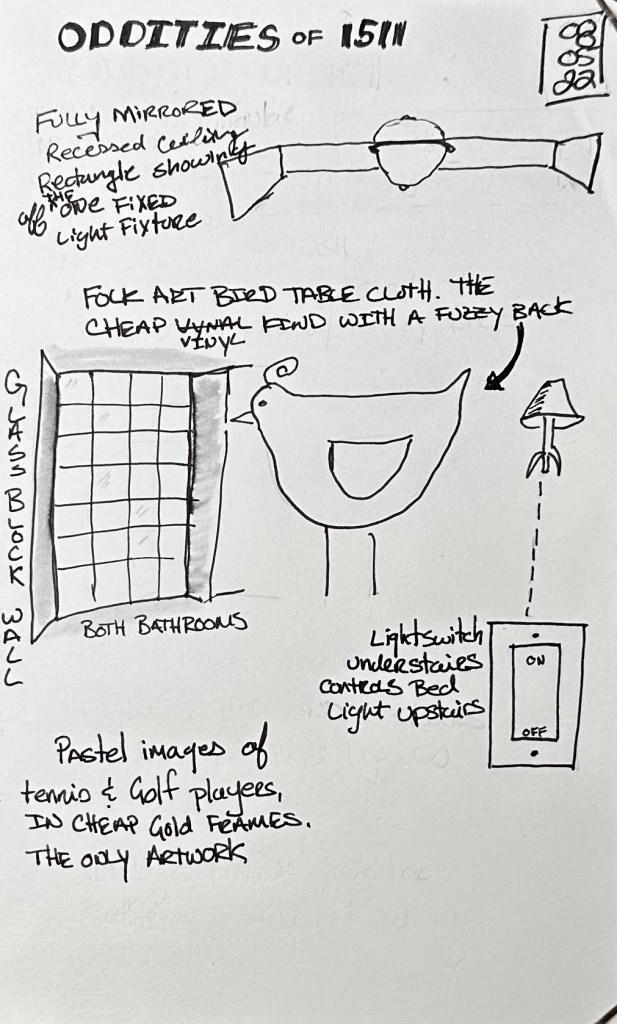 ODDITIES OF 1511
08
05
22
FULLY MIRRORED
Recessed Ceiling
Rectangle showing
off THE ONE FIXED
Light Fixture
FOLK ART BIRD TABLE CLOTH. THE
CHEAP VYNAL KIND WITH A FUZZY BACK
VINYL
GLASS BLOCK WALL
BOTH BATHROOMS
Lightswitch
understaires
controls Bed
Light upstairs
ON
OFF
Pastel images of
tennis & Golf players,
IN CHEAP Gold FRAMES.
THE ONLY ARTWORK